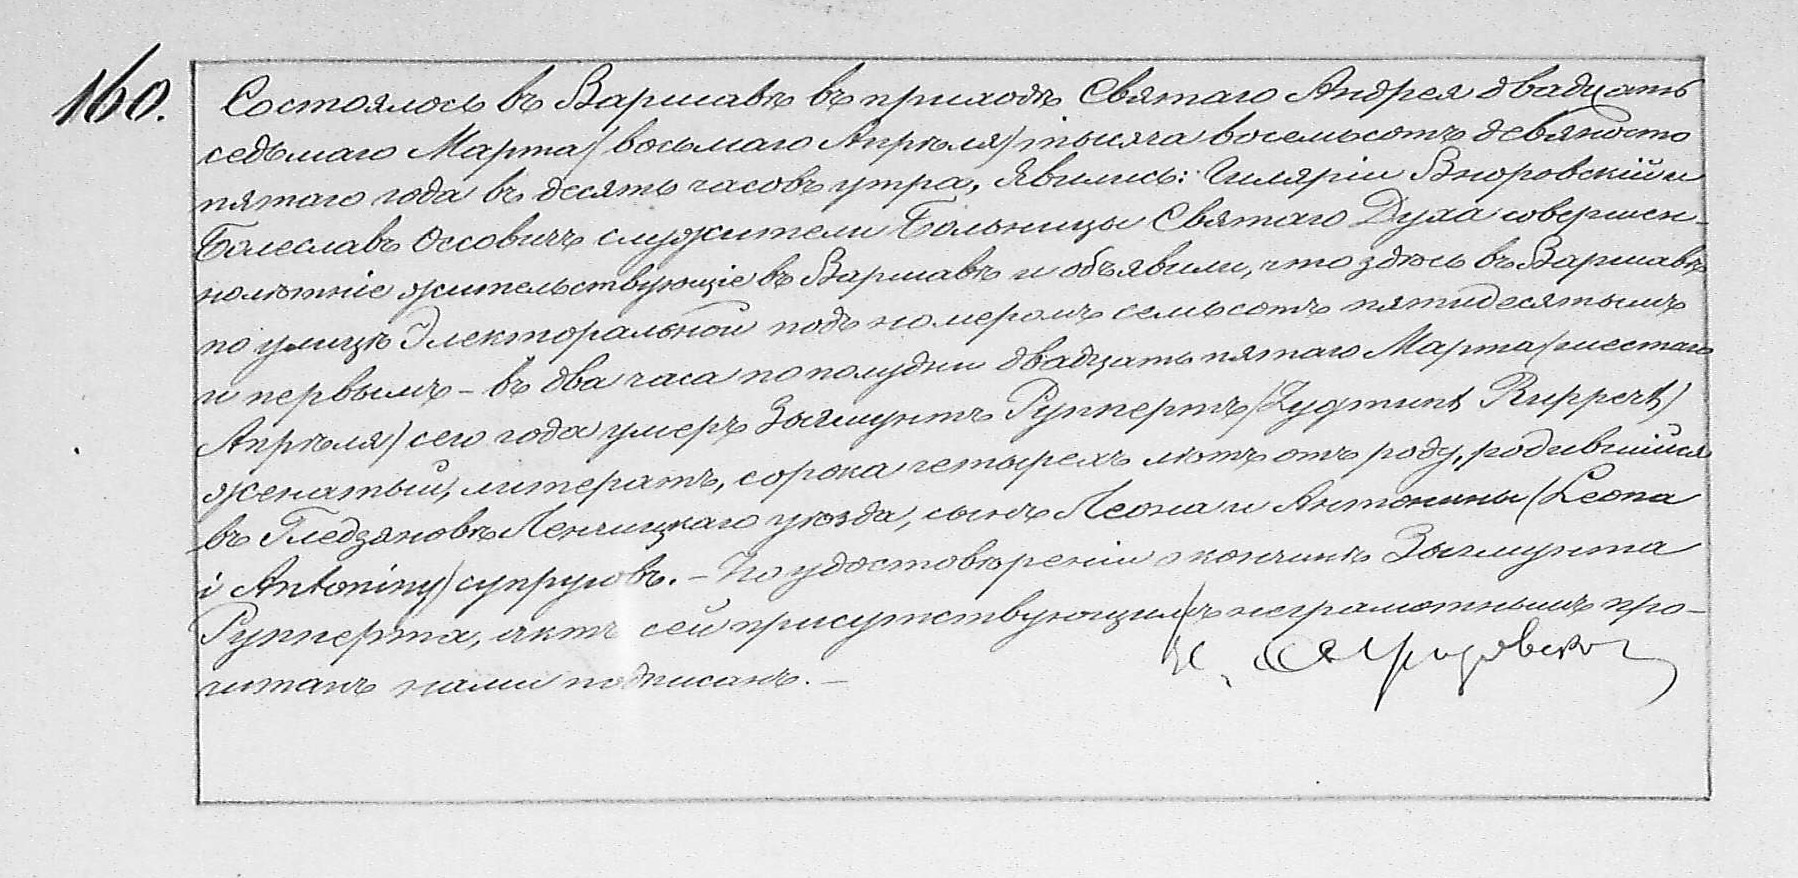 160.
Состоялось въ Варшавѣ въ приходѣ Святаго Андрея двадцать
седьмаго Марта/восьмаго Апрѣля/тысяча восемьсотъ девяносто
пятаго года въ десять часовъ утра. Явились: Гилярій Вноровскій и
Болеславъ Оссовичъ служители Больницы Святаго Духа совершен-
нолѣтніе жительствующіе въ Варшавѣ и объявили, что здѣсь въ Варшавѣ
по улицѣ Электоральной подъ номеромъ семьсотъ пятидесятымъ
и первымъ – въ два часа пополудни двадцать пятаго Марта/шестаго
Апрѣля/сего года умеръ Зыгмунтъ Руппертъ/Zygmunt Ruppert/
женатый, литератъ, сорока четырехъ лѣтъ отъ роду, родившійся
въ Гледзяновѣ Ленчицкаго уѣзда, сынъ Леона и Антонины/Leona
i Antoniny/супруговъ. – По удостовѣреніи о кончинѣ Зыгмунта
Рупперта, актъ сей присутствующимъ неграмотнымъ про-
читанъ нами подписанъ. –